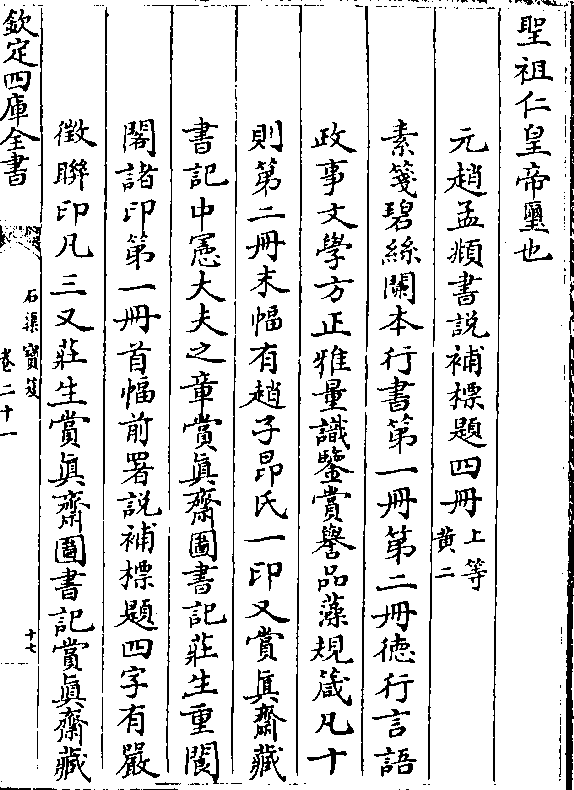 聖祖仁皇帝璽也
元趙孟頫書説補標題四冊上等
黄二
素箋碧絲闌本行書第一冊第二冊徳行言語
政事文學方正雅量識鑒賞譽品藻規箴凡十
則第二冊末幅有趙子昂氏一印又賞真齋藏
書記中憲大夫之章賞真齋圖書記莊生重閱
閣諸印第一冊首幅前署説補標題四字有嚴
徵聨印凡三又莊生賞真齋圖書記賞真齋藏
欽定四庫全書
石渠寶笈
卷二十一
十七